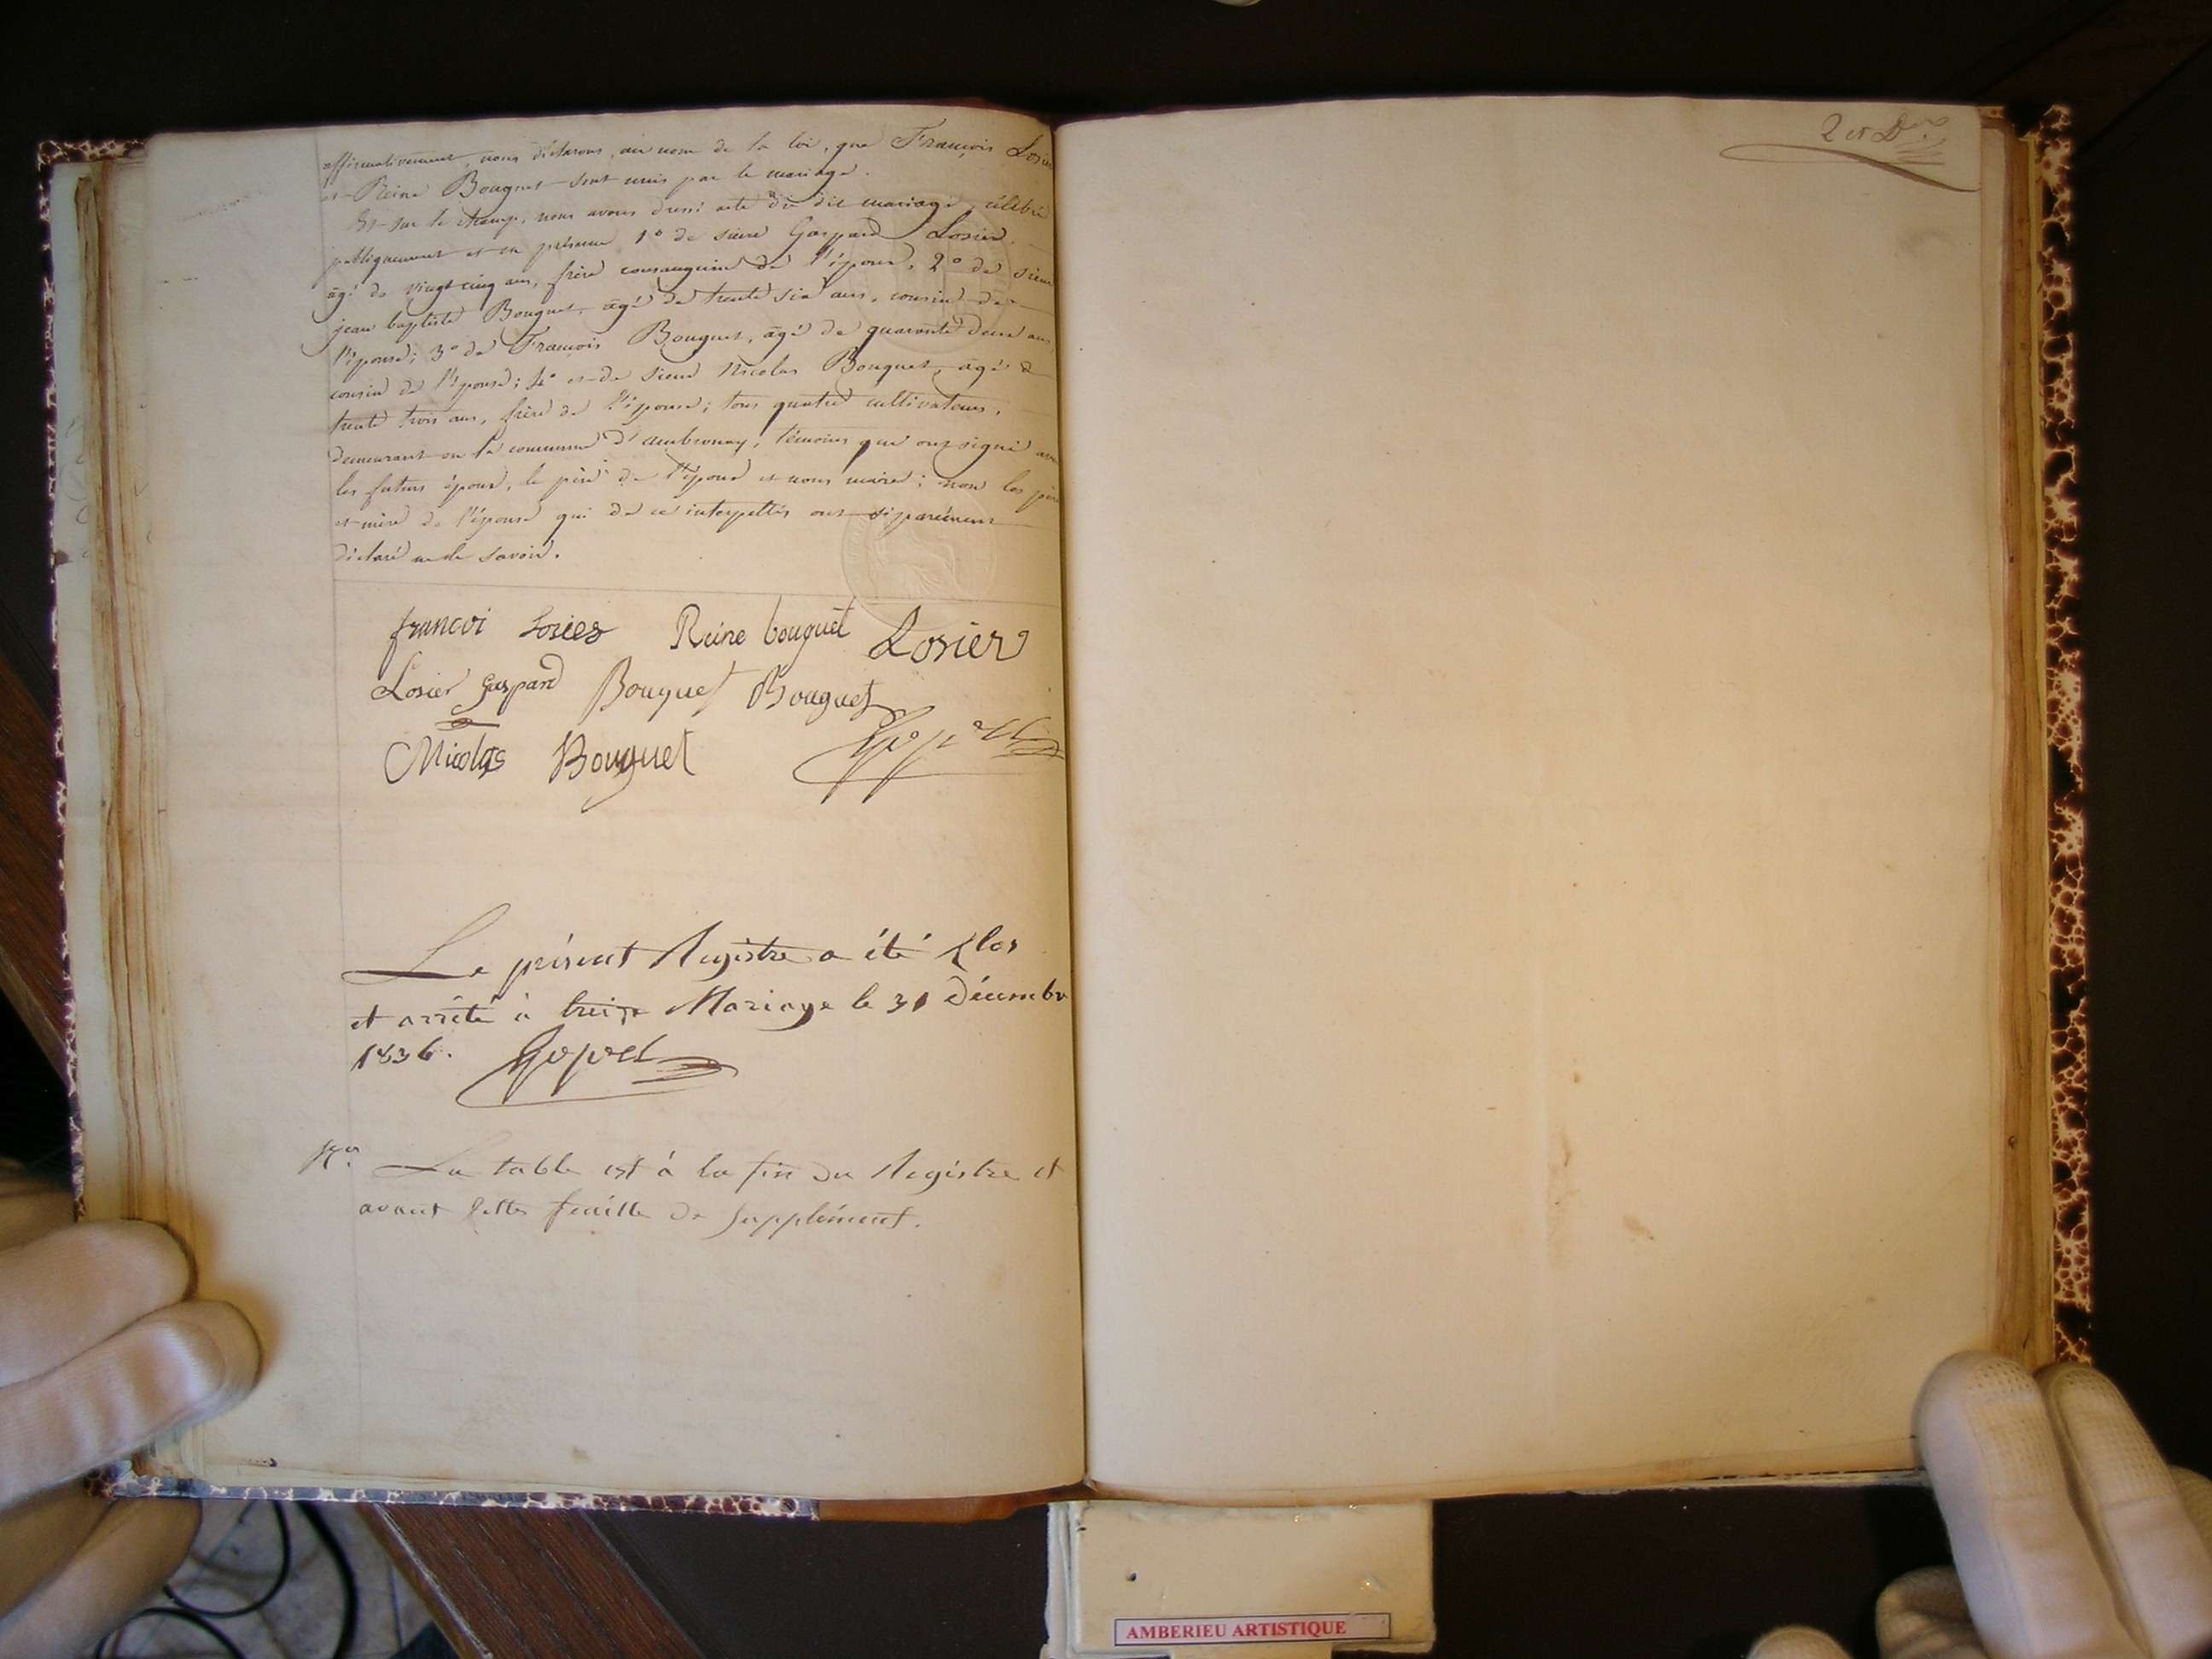 affirmativement, nous déclarons, au nom de la loi, que François Losier
et Reine Bouquet sont unis par le mariage.
Et sur le champ, nous avons dressé acte du dit mariage, célébré
publiquement et en présence 1° de sieur Gaspard Losier,
âgé de vingt cinq ans, frère consanguin de l'époux, 2° de sieur
jean baptiste Bouquet, âgé de trente six ans, cousin de
l'épouse; 3° de François Bouquet, âgé de quarante deux ans,
cousin de l'épouse; 4° et de sieur Nicolas Bouquet, âgé de
trente trois ans, frère de l'épouse; tous quatre cultivateurs,
demeurant en la commune d'ambronay, témoins qui ont signé avec
les futurs époux, le père de l'époux et nous maire; non les père
et mère de l'épouse qui de ce interpellés ont séparément
déclaré ne le savoir.
francoi Losier Reine bouquet Losier
Losier gaspard Bouquet Bouquet
Nicolas Bouquet
Le présent Registre a été Clos
et arrêté à treize Mariage le 31 Décembre
1836.
Na. La table est à la fin du Registre et
avant cette feuille de Supplément.
2 et D
AMBERIEU ARTISTIQUE